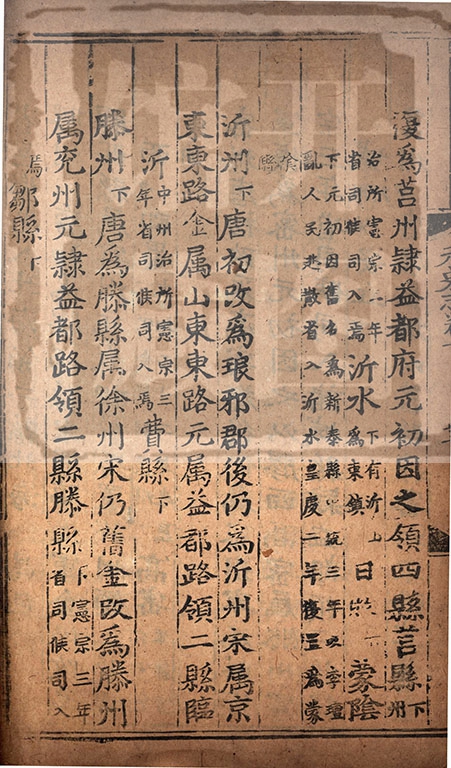 復爲莒州隷益都府元初因之領四縣莒縣下州
治所憲宗二年省司候司入焉沂水下有沂山爲東鎮日照下蒙陰
下元初因舊名爲新泰縣中統三年以李璮亂人民逃散省入沂水皇慶二年復置爲蒙
陰縣
沂州下唐初改爲琅邪郡後仍爲沂州宋属京
東東路金属山東東路元属益都路領二縣臨
沂中州治所憲宗三年省司候司入焉費縣下
滕州下唐爲滕縣属徐州宋仍舊金改爲滕州
属兖州元隷益都路領二縣滕縣下憲宗三年省司候司入
焉鄒縣下